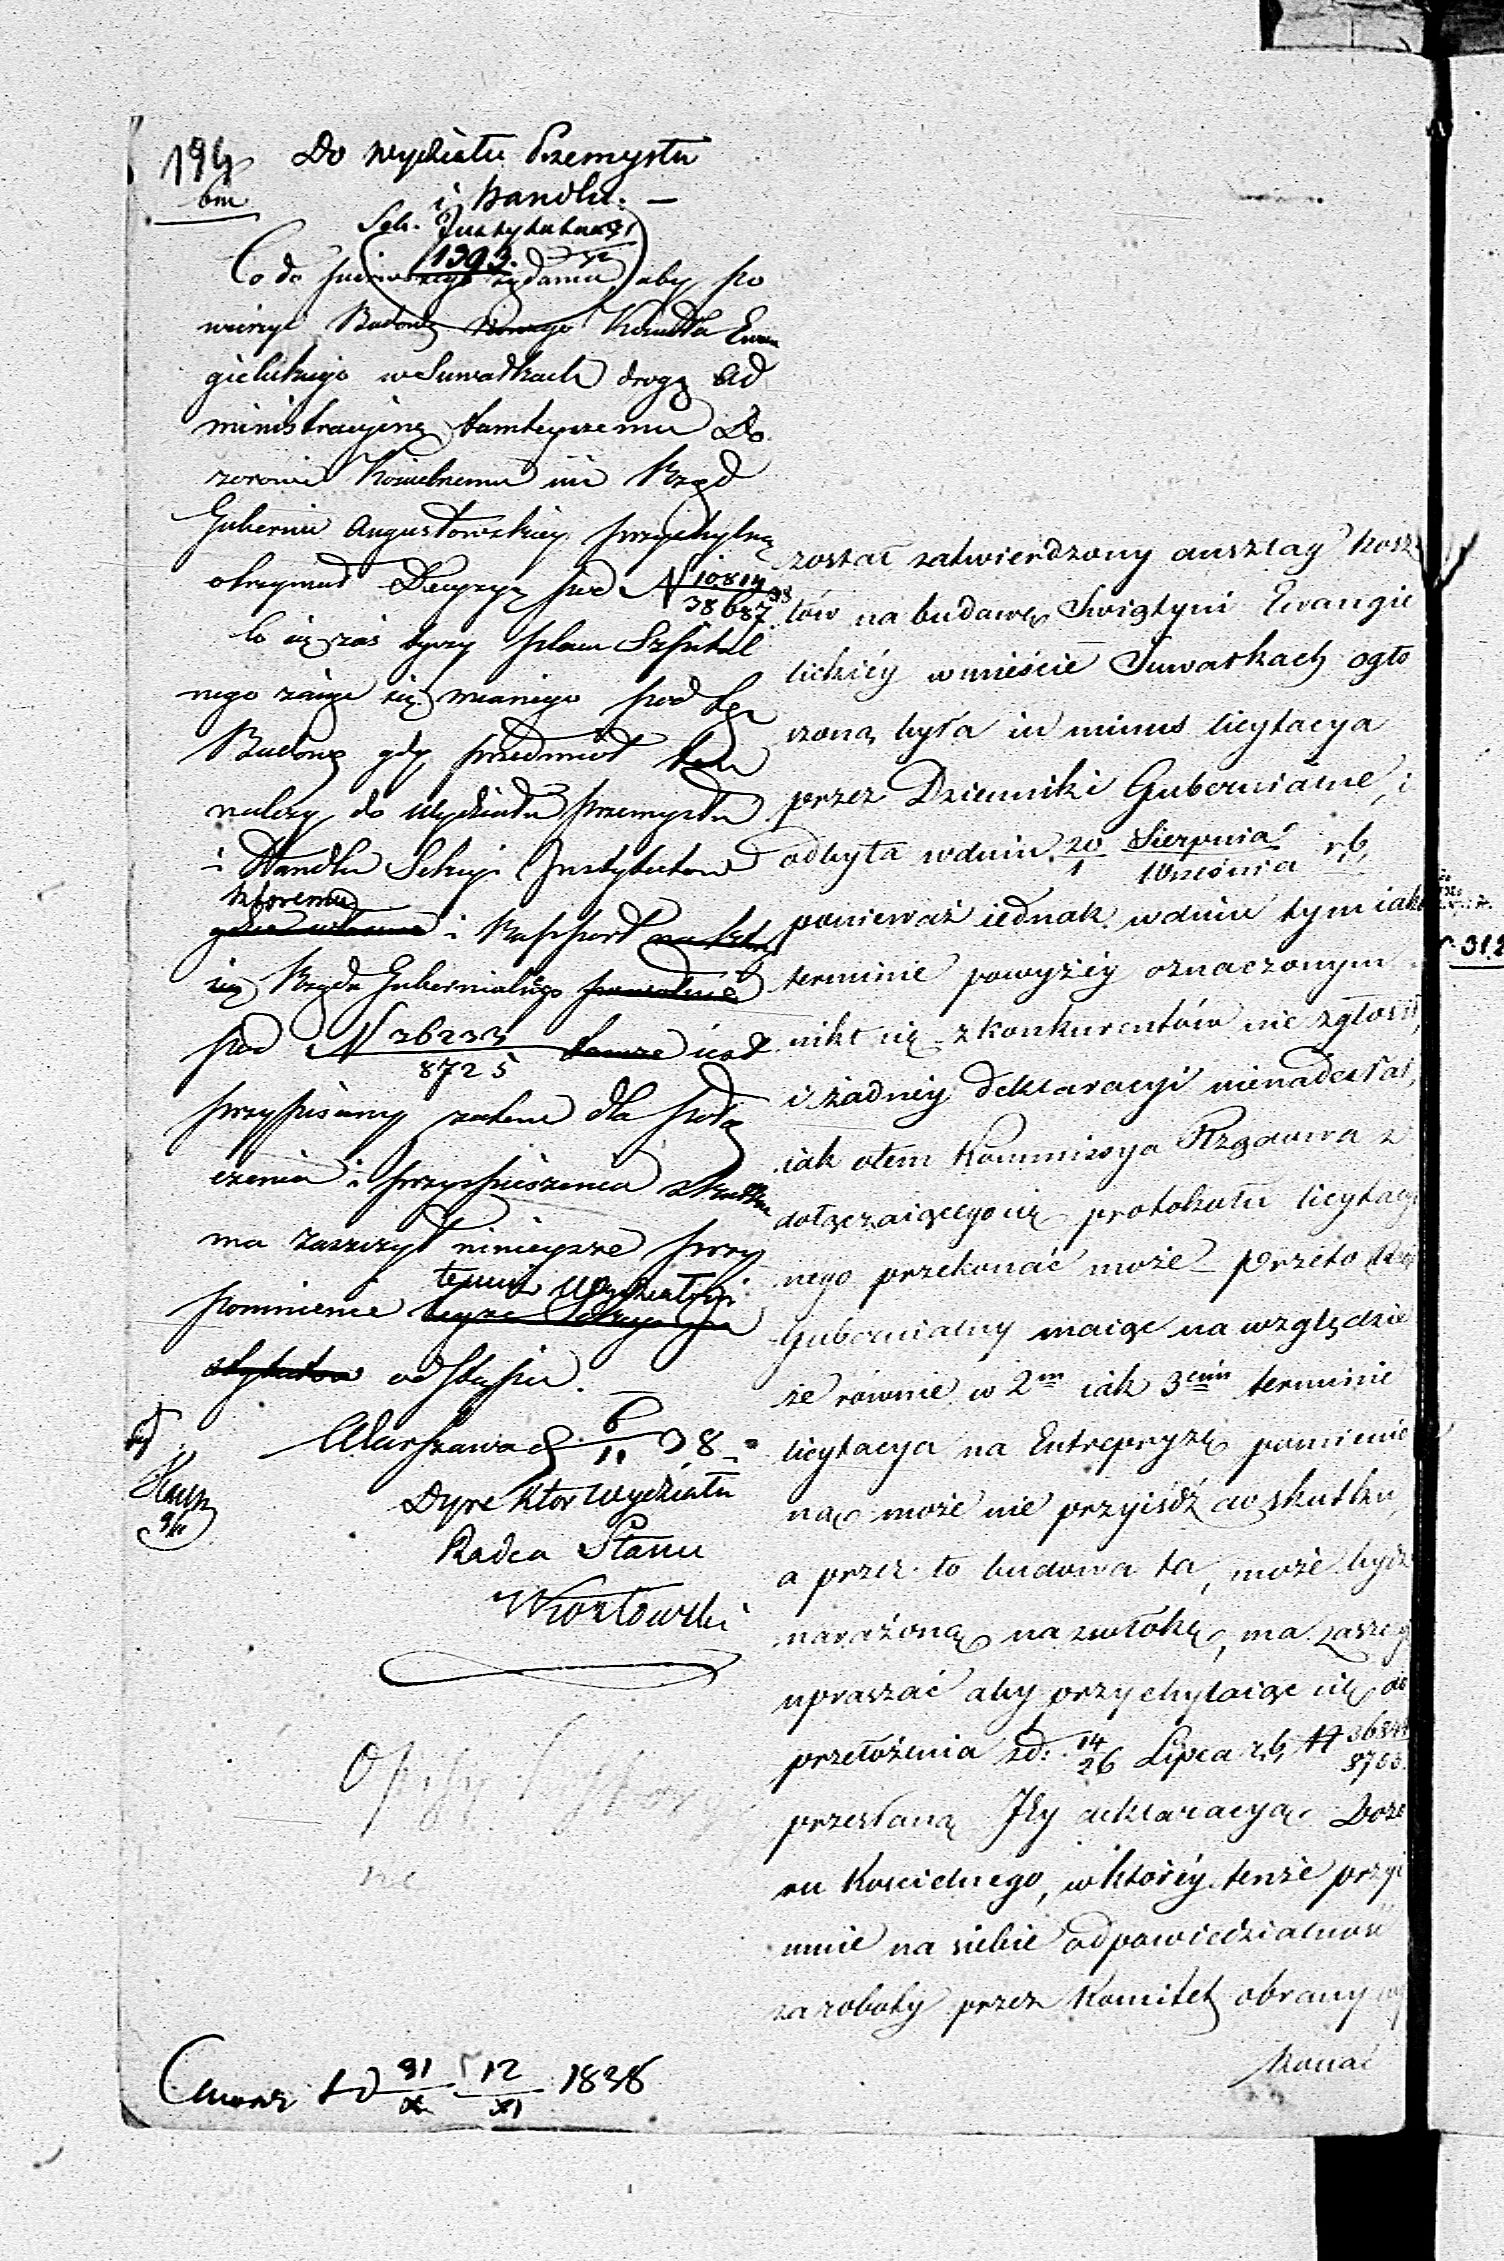 194
bm
Do Wydziału Przemysłu
i Handlu. —
Sek. Instytutowej
1393.
Co do żądania, aby po
wierzyć Budowę Nowego Kościoła Ewan
gielickiego w Suwałkach drogą Ad
ministracyjną tamteyszemu Do
zorowi Kościelnemu iuż Rząd
Gubernii Augustowskiey przychylną
otrzymał Decyzyę pod N 10814 38687
Co się zaś tyczy placu Szpital
nego zająć się maiącego pod tę
Budowę gdy przedmiot ten
należy do Wydziału przemysłu
i Handlu Sekcyi Instytutow
któremu
gdzie własnie i Rapport
Rządu Gubernialnego
pod N 26233 8725 tamże iest
przypisany zatem dla połą
czenia i przyspieszenia skutku
ma zaszczyt ninieysze przy
temuż Wydziałowi
pomnienie teyże Sekcyi In
stytutow odstąpić.
Warszawa d. 6/11 38
Dyrektor Wydziału
Radca Stanu
Kozłowski
został zatwierdzony anszlag kosz
tów na budowę Swiątyni Ewangie
lickiéy w mieście Suwałkach ogło
szoną była in minus licytacya
przez Dzienniki Gubernialne, i
odbyta w dniu 20 Sierpnia / 1 Września r.b.
ponieważ iednak w dniu tym iako
terminie powyżéy oznaczonym
nikt się z konkurentów nie zgłosił,
i żadnéy deklaracyi nienadesłał,
iak otem Kommissya Rządowa z
dołączaiącego się protokołu licytacyi
nego przekonać może – Przeto Rząd
Gubernialny maiąc na względzie
że równie w 2m iak 3cim terminie
licytacya na Entrepryzę pomienio
ną może nie przyiśdź do skutku,
a przez to budowa ta, może bydź
narażoną na zwłokę, ma zaszczyt
upraszać aby przychylaiąc się do
przełożenia z d: 14/26 Lipca r.b. N
przesłaną Jéy deklaracyą Dozo
ru Kościelnego, w któréy tenże przyi
muie na siebie odpowiedzialność
za roboty przez Komitet obrany wy
konać
31/X 12/XI 1838
312